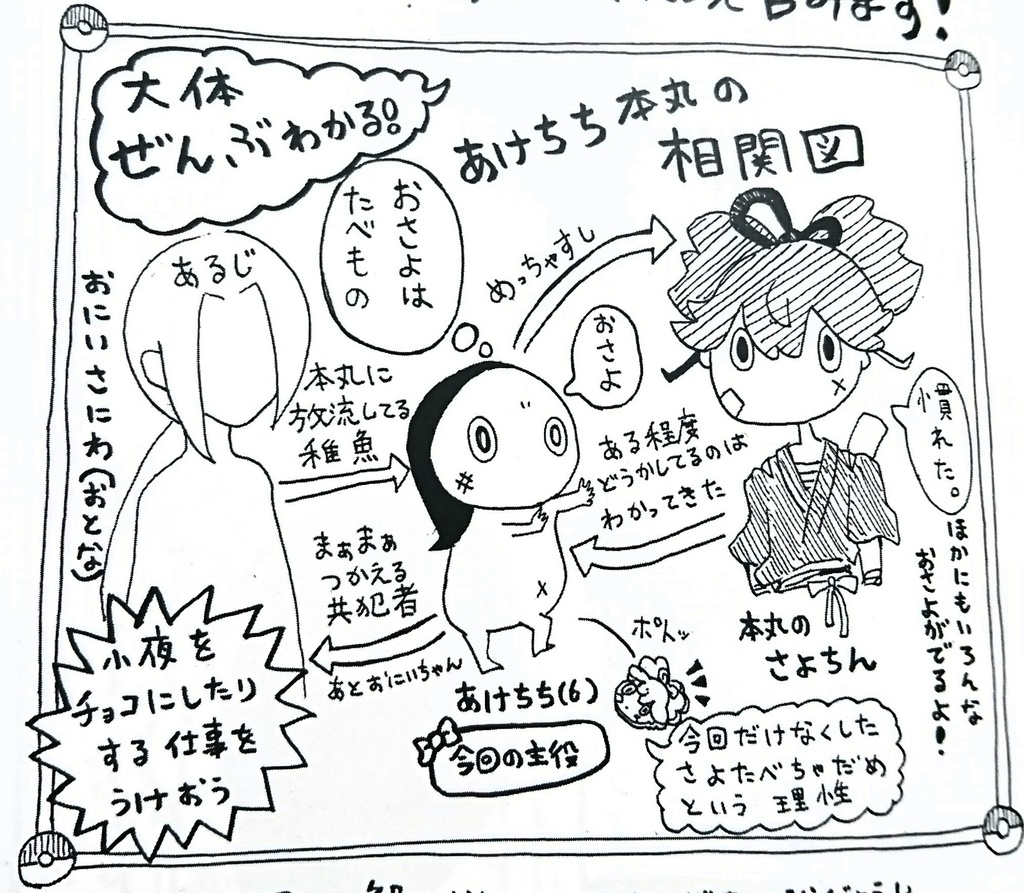 含めます!
大体
ぜんぶわかる!
あけちち本丸の
相関図
おさよは
たべもの
めっちゃすし
あるじ
おにいさにわ(おとな)
本丸に
放流してる
稚魚
おさよ
ある程度
どうかしてるのは
わかってきた
慣れた。
ほかにもいろんな
おさよがでるよ!
まぁまぁ
つかえる
共犯者
あとおにいちゃん
小夜を
チョコにしたり
する仕事を
うけおう
あけちち(6)
今回の主役
ポトッ
本丸の
さよちん
今回だけなくした
さよたべちゃだめ
という理性